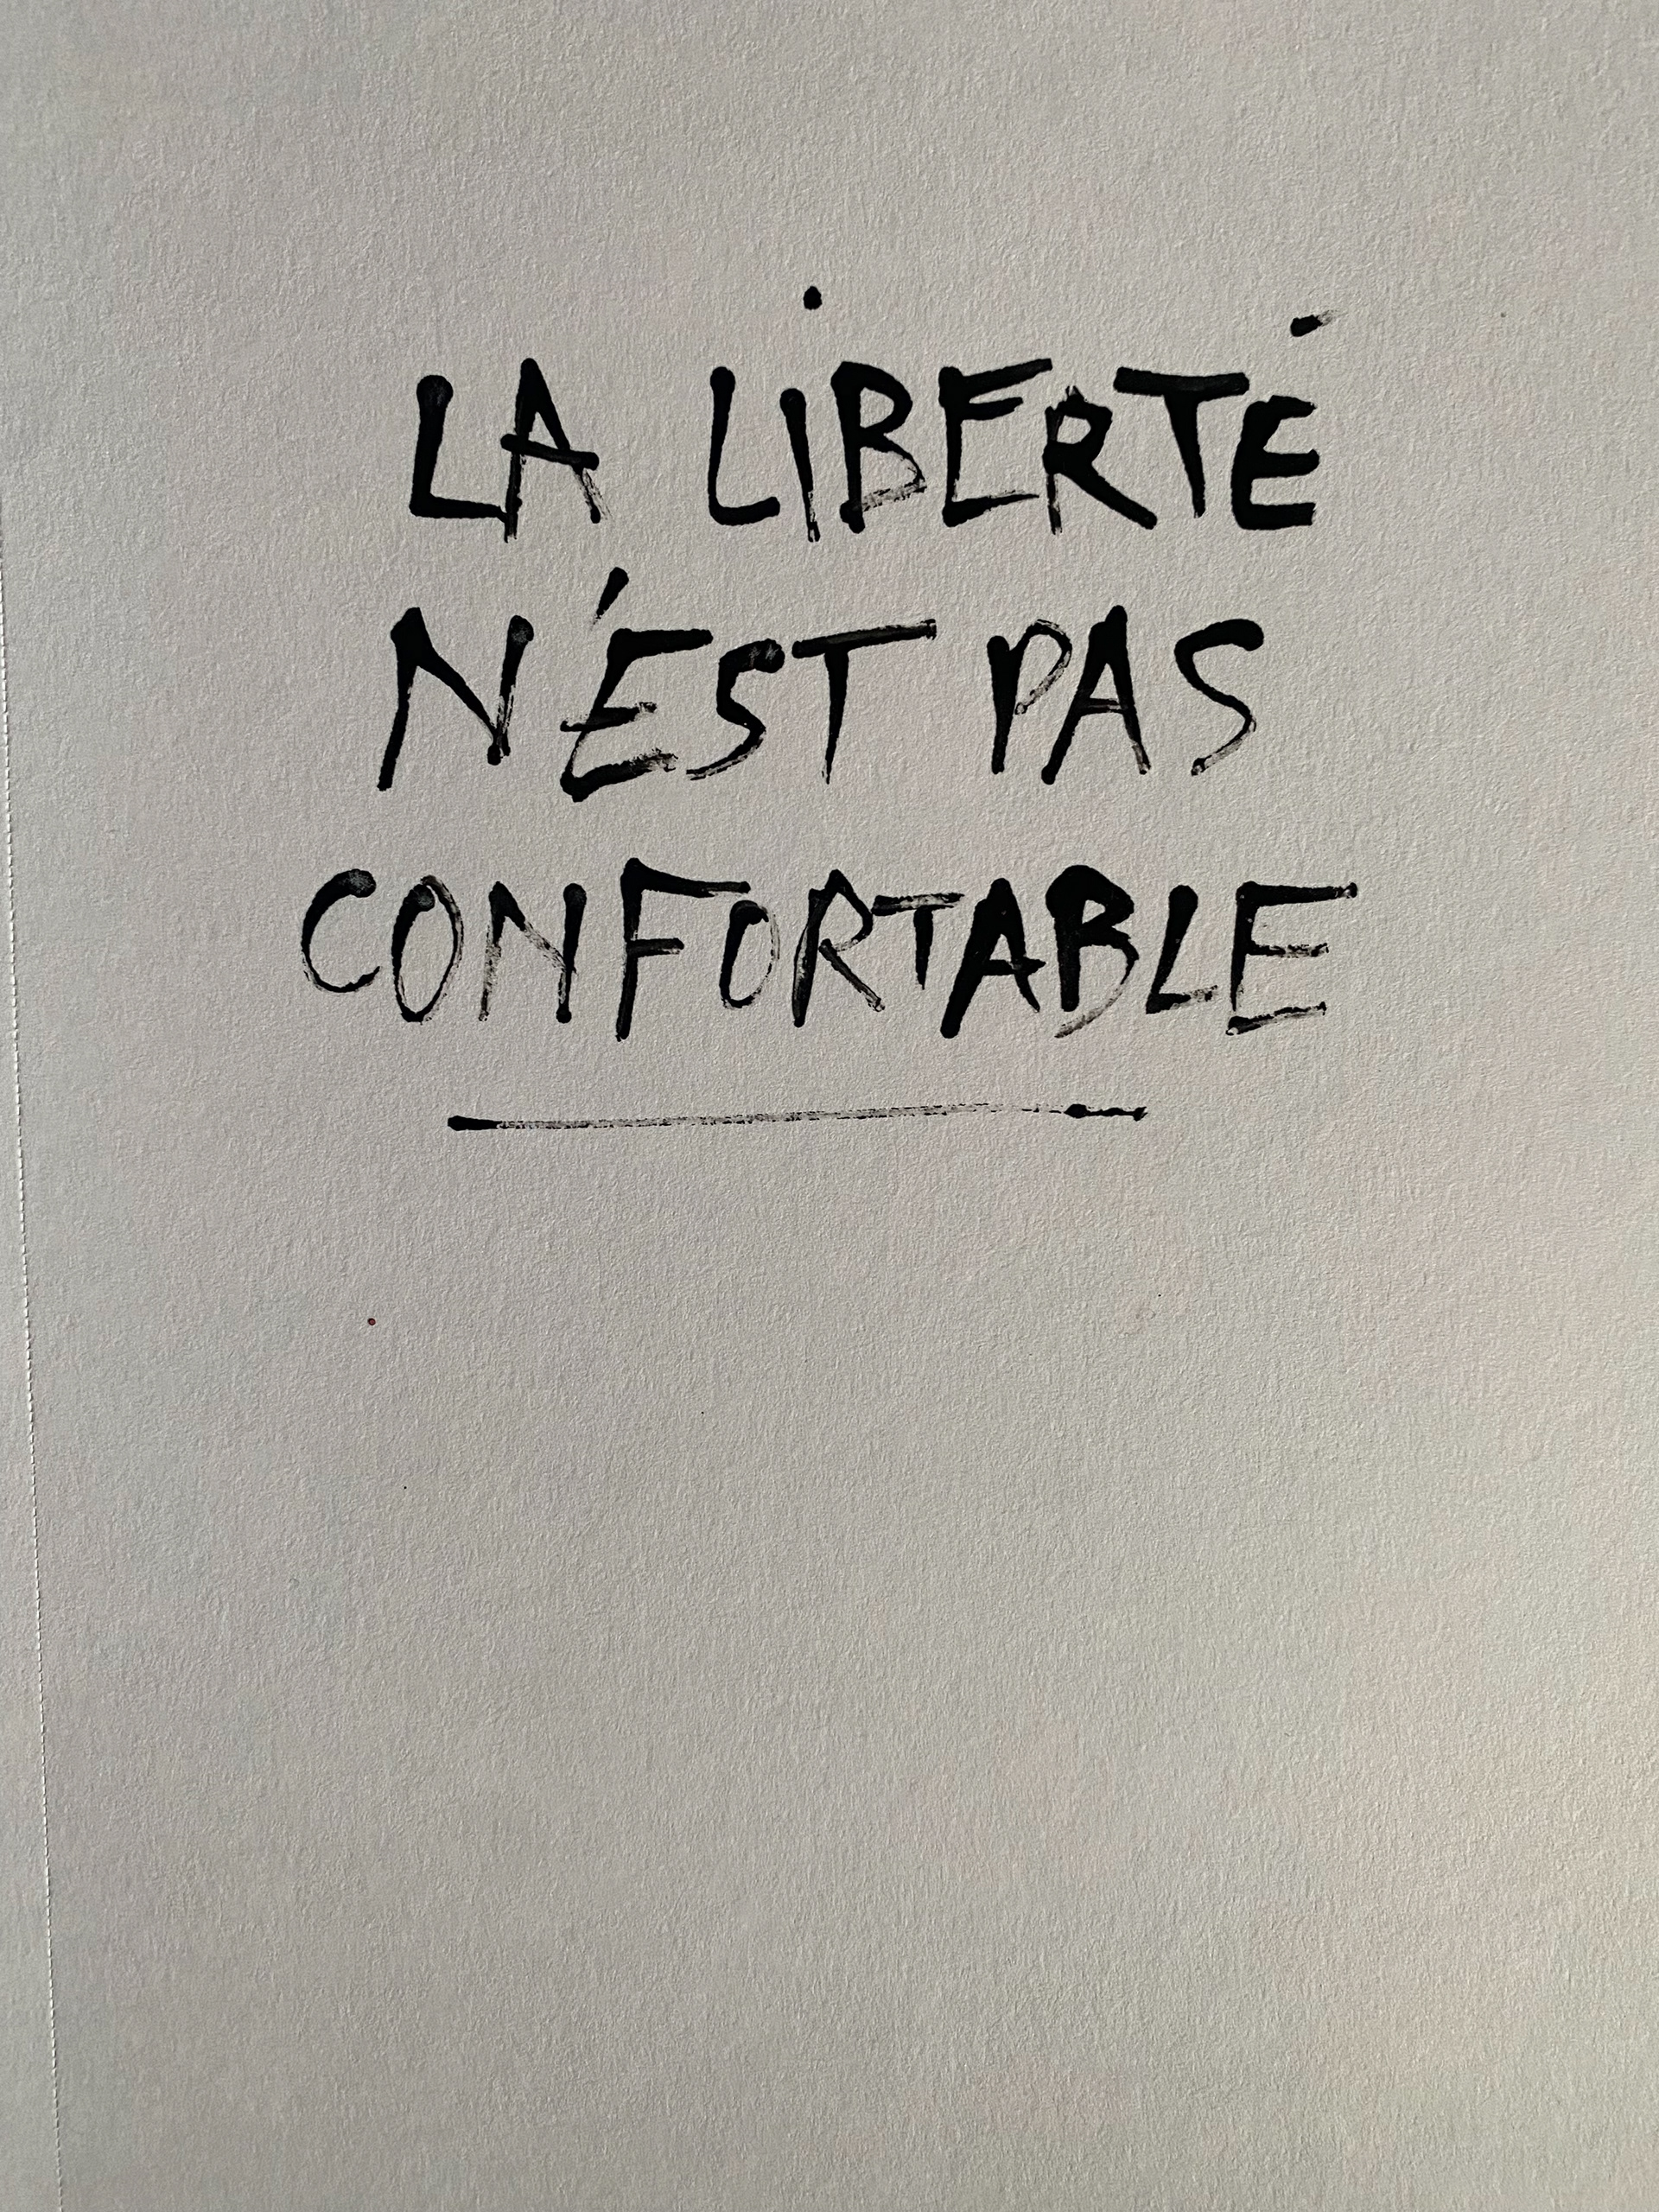 LA LIBERTÉ
N'EST PAS
CONFORTABLE